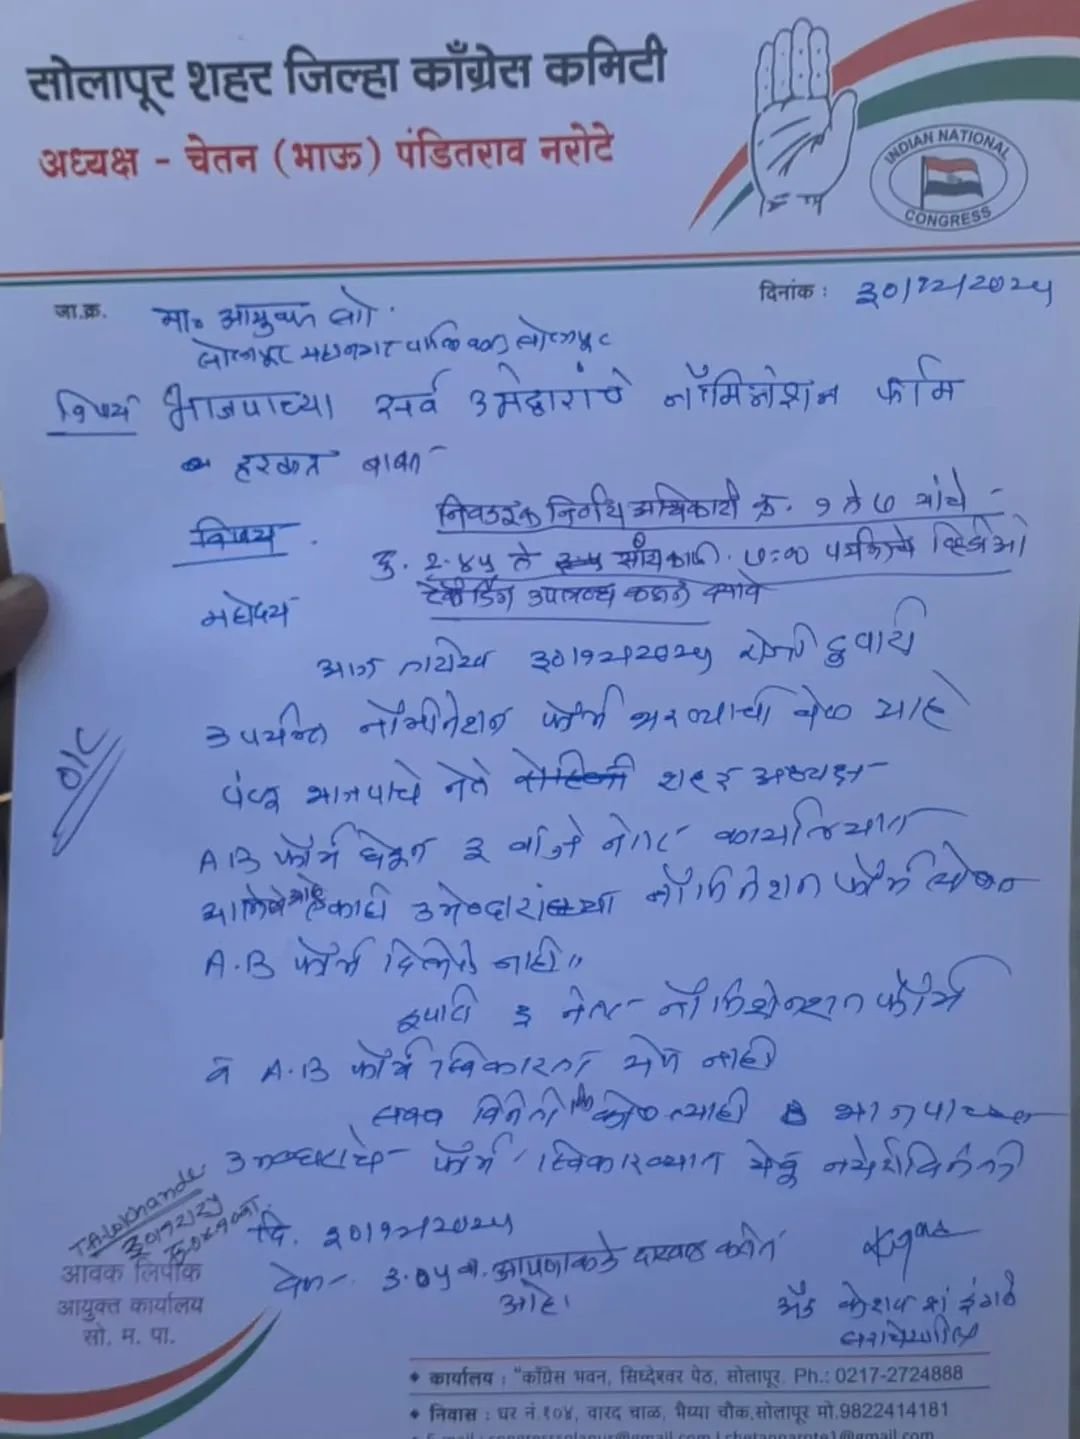 सोलापूर शहर जिल्हा काँग्रेस कमिटी
अध्यक्ष - चेतन (भाऊ) पंडितराव नरोटे
INDIAN NATIONAL
CONGRESS
जा.क्र.
दिनांक : ३०/१२/२०२५
मा. आयुक्त सो.
सोलापूर महानगरपालिका सोलापूर
विषय भाजपाच्या सर्व उमेद्वारांचे नॉमिनेशन फॉर्म
हरकत बाबत
विषय
निवडणूक निर्णय अधिकारी क्र. १ ते ७ यांचे
दु. २.४५ ते सायंकाळी ५:०० पर्यंतचे व्हिडीओ
रेकॉर्डिंग उपलब्ध करून द्यावे
महोदय
आज तारीख ३०/१२/२०२५ रोजी दुपारी
३ पर्यंत नॉमीनेशन फॉर्म भरण्याची वेळ आहे
परंतु भाजपाचे नेते शहर अध्यक्ष
A B फॉर्म घेऊन ३ वाजे नंतर कार्यालयात
उमेदवारांच्या नॉमिनेशन फॉर्म
A.B फॉर्म दिलेले नाही
नॉमिनेशन फॉर्म
व A.B फॉर्म स्विकारता येत नाही
सबब विनंती की कोणत्याही भाजपाच्या
उमेदवाराचे फॉर्म स्विकारण्यात येवू नये ही विनंती
दि. ३०/१२/२०२५
वेळ - ३.०५ वा. आपणाकडे दाखल करीत
आहे।
अॅड केशव इंगळे
O/C
T.A. Lokhande
३०/१२/२५
आवक लिपीक
आयुक्त कार्यालय
सो. म. पा.
कार्यालय : "काँग्रेस भवन, सिध्देश्वर पेठ, सोलापूर. Ph.: 0217-2724888
निवास : घर नं.१०४, वारद चाळ, भैय्या चौक,सोलापूर मो.9822414181